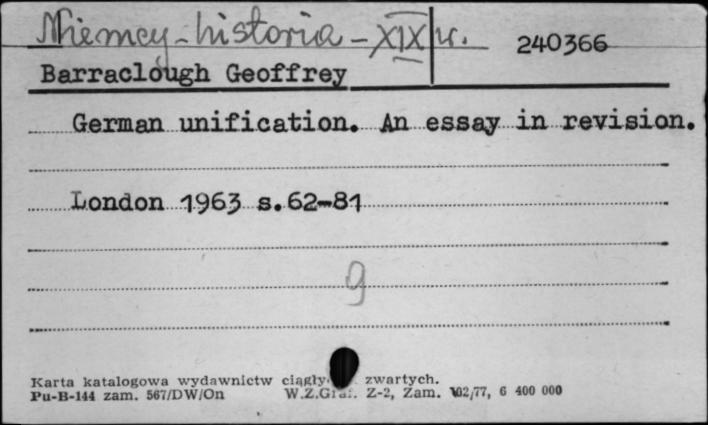 Niemcy - historia - XIX w. 240366
Barraclough Geoffrey
German unification. An essay in revision.
London 1963 s. 62-81
g
Karta katalogowa wydawnictw zwartych.
Pu-B-144 zam. 567/DW/On W.Z.Graf. Z-2, Zam. 6 400 000